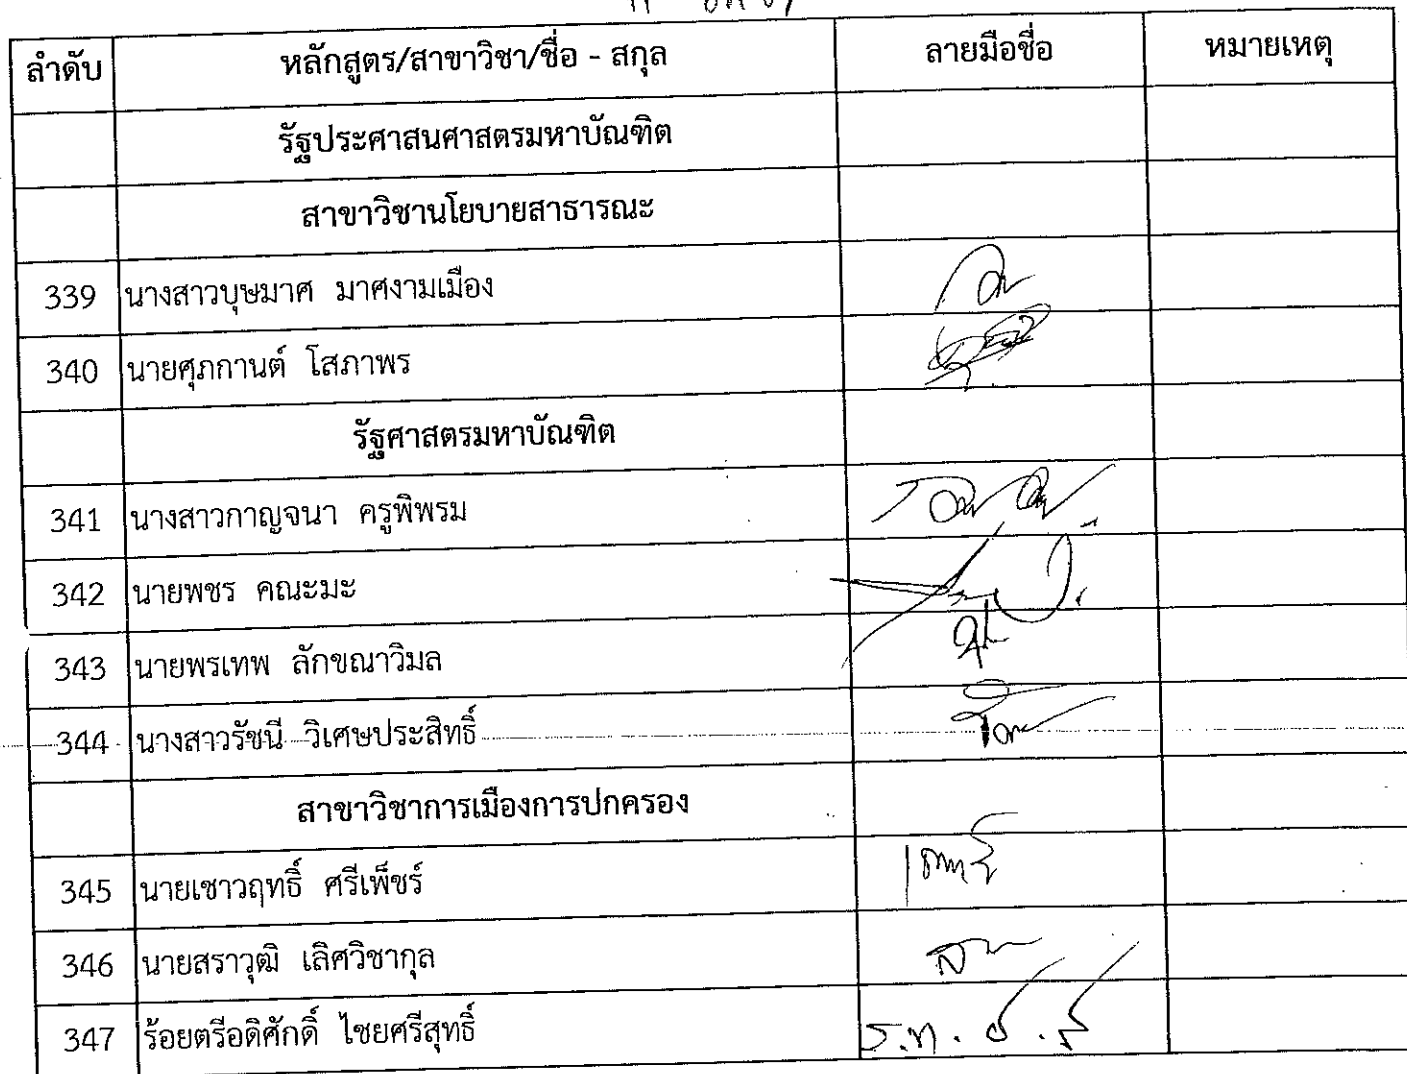 ลำดับ หลักสูตร/สาขาวิชา/ชื่อ - สกุล ลายมือชื่อ หมายเหตุ
รัฐประศาสนศาสตรมหาบัณฑิต
สาขาวิชานโยบายสาธารณะ
339 นางสาวบุษมาศ มาศงามเมือง
340 นายศุภกานต์ โสภาพร
รัฐศาสตรมหาบัณฑิต
341 นางสาวกาญจนา ครูพิพรม
342 นายพชร คณะมะ
343 นายพรเทพ ลักขณาวิมล
344 นางสาวรัชนี วิเศษประสิทธิ์
สาขาวิชาการเมืองการปกครอง
345 นายเชาวฤทธิ์ ศรีเพ็ชร์
346 นายสราวุฒิ เลิศวิชากุล
347 ร้อยตรีอดิศักดิ์ ไชยศรีสุทธิ์